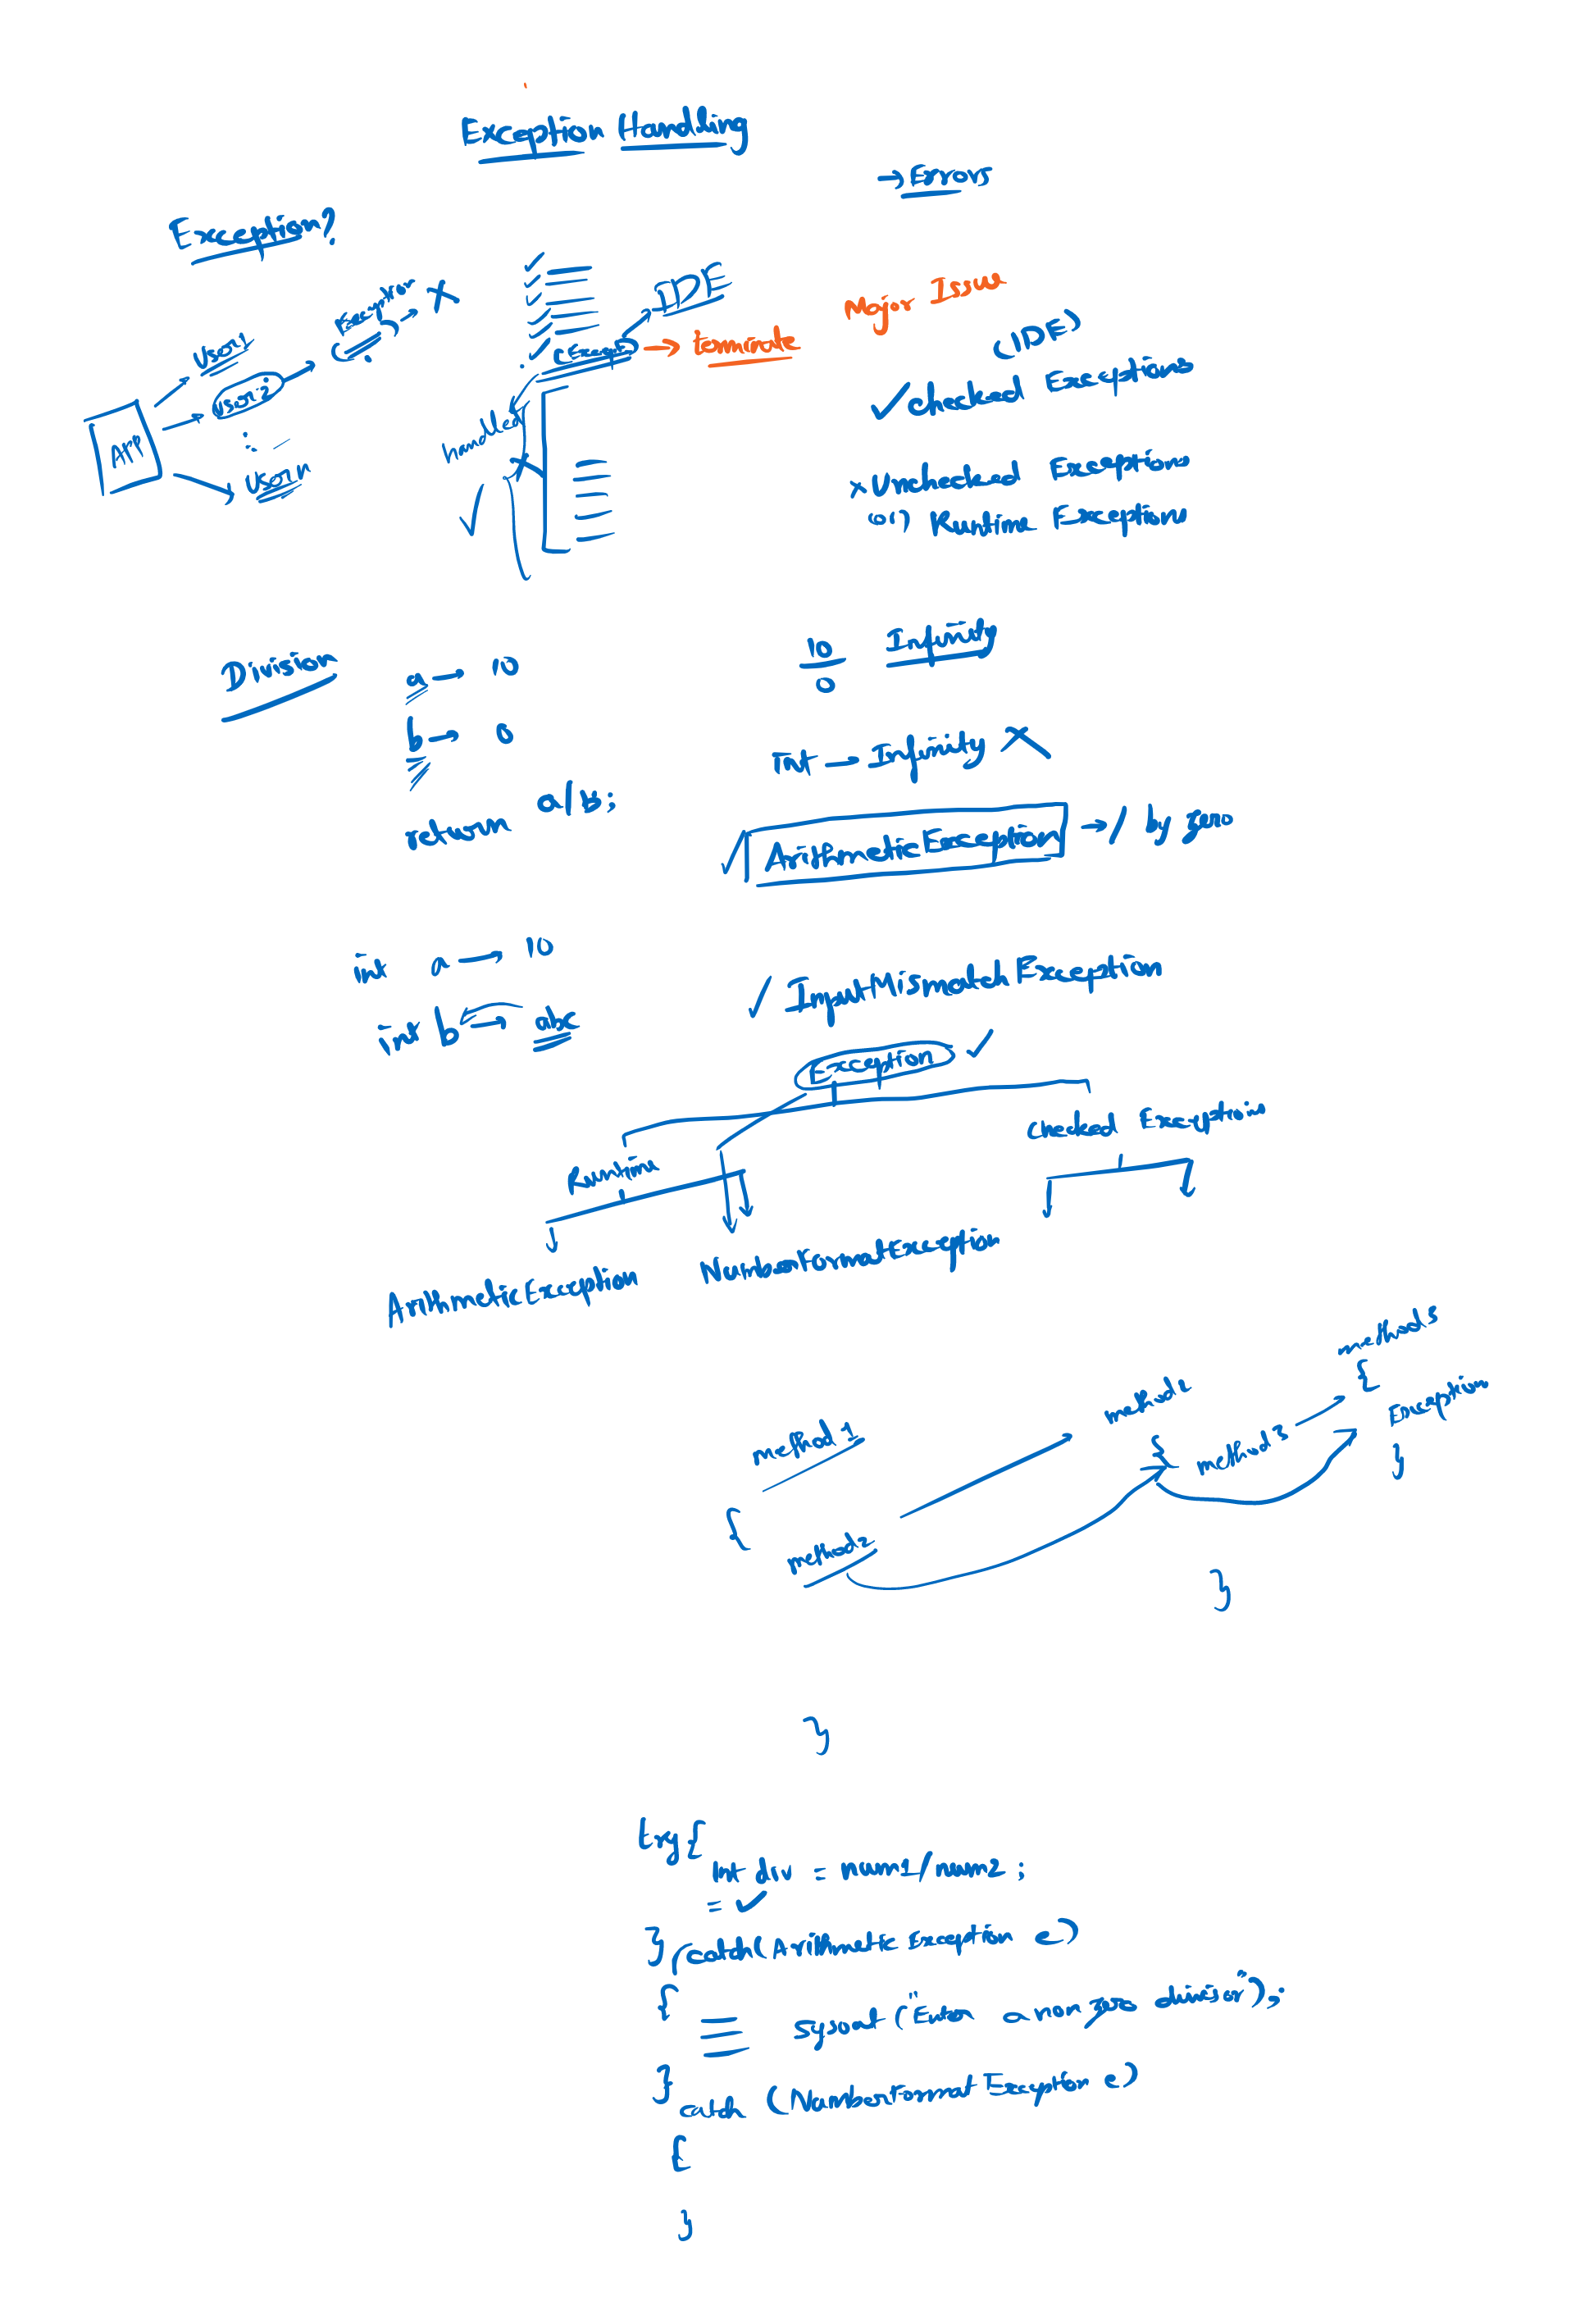 Exception Handling
→ Errors
Exception?
APP
User1
User2
User n
Exception
IDE
→ terminate
handled
Major Issue
(IDE)
✓ checked Exceptions
x Unchecked Exceptions
(or) Runtime Exceptions
Division
a → 10
b → 0
return a/b;
10
0
Infinity
int → Infinity X
✓ ArithmeticException → / by zero
int a → 10
int b → abc
✓ InputMismatchException
Exception ✓
Runtime
Checked Exceptions
ArithmeticException
NumberFormatException
method1
{
method2
method2
{
method3
method3
{
Exception
}
}
}
try{
int div = num1/num2;
= ✓
} catch(Arithmetic Exception e)
{
sysout("Enter a non zero divisor");
}
catch (NumberFormat Exception e)
{
}